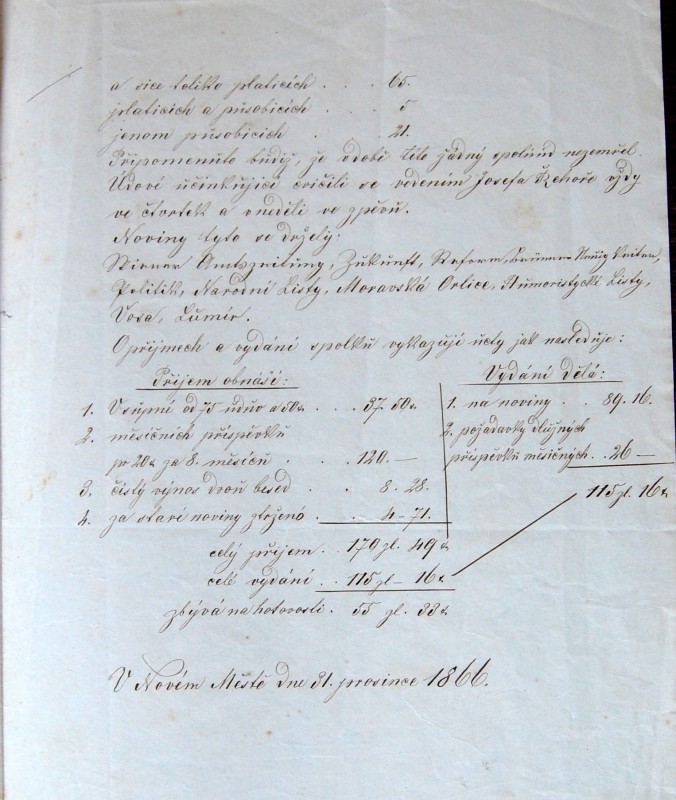 a sice toliko platicích . . . 65.
platicích a působicích . 5
jenom působicích . 21.
Připomenuto budiž, že údobí této žádný spoluúd nezemřel.
Údové účinkující cvičili se vedením Josefa Řehoře vždy
ve čtvrtek a v neděli ve zpěvu.
Noviny tyto se držely:
Wiener Amtszeitung, Zukunft, Reform,
Politik, Národní Listy, Moravská Orlice, Humoristycké Listy,
Vosa, Lumír.
O příjmech a vydání spolku vykazují účty jak následuje:
Příjem obnáší:
1. Vstupné od 75 údův a 50 x. . . . 37. 50 x.
2. měsíčních příspěvků
pr 20 x za 8. měsíců . . 120. —
3. čistý výnos dvou besed . . 8. 28.
4. za staré noviny strženo . 4 – 71.
celý příjem . . 170 zl. 49 x
celé vydání . . 115 zl – 16 x
zbývá na hotovosti . 55 zl. 33 x.
Vydání dělá:
1. na noviny . . 89. 16.
2. požadavky dlužných
příspěvků měsíčných . . 26 —
115 zl. 16 x
V Novém Městě dne 31. prosince 1866.